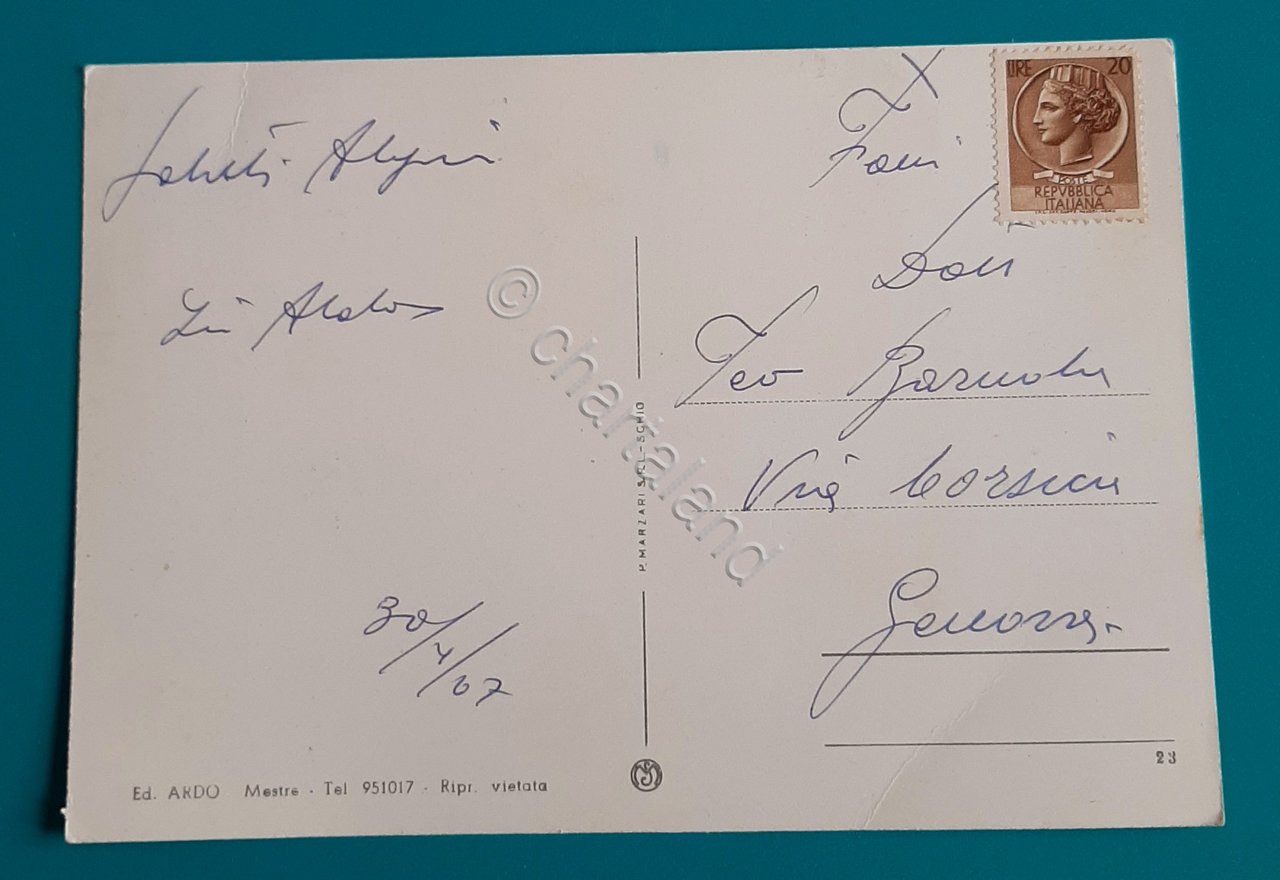 Saluti Alpini
Zio Aldo
30/4/67
Ed. ARDO Mestre - Tel 951017 - Ripr. vietata
P. MARZARI S.R.L. - SCHIO
LIRE 20
POSTE
REPVBBLICA
ITALIANA
Fam
Dott
Teo
Via Corsica
Genova
23
© chartaland